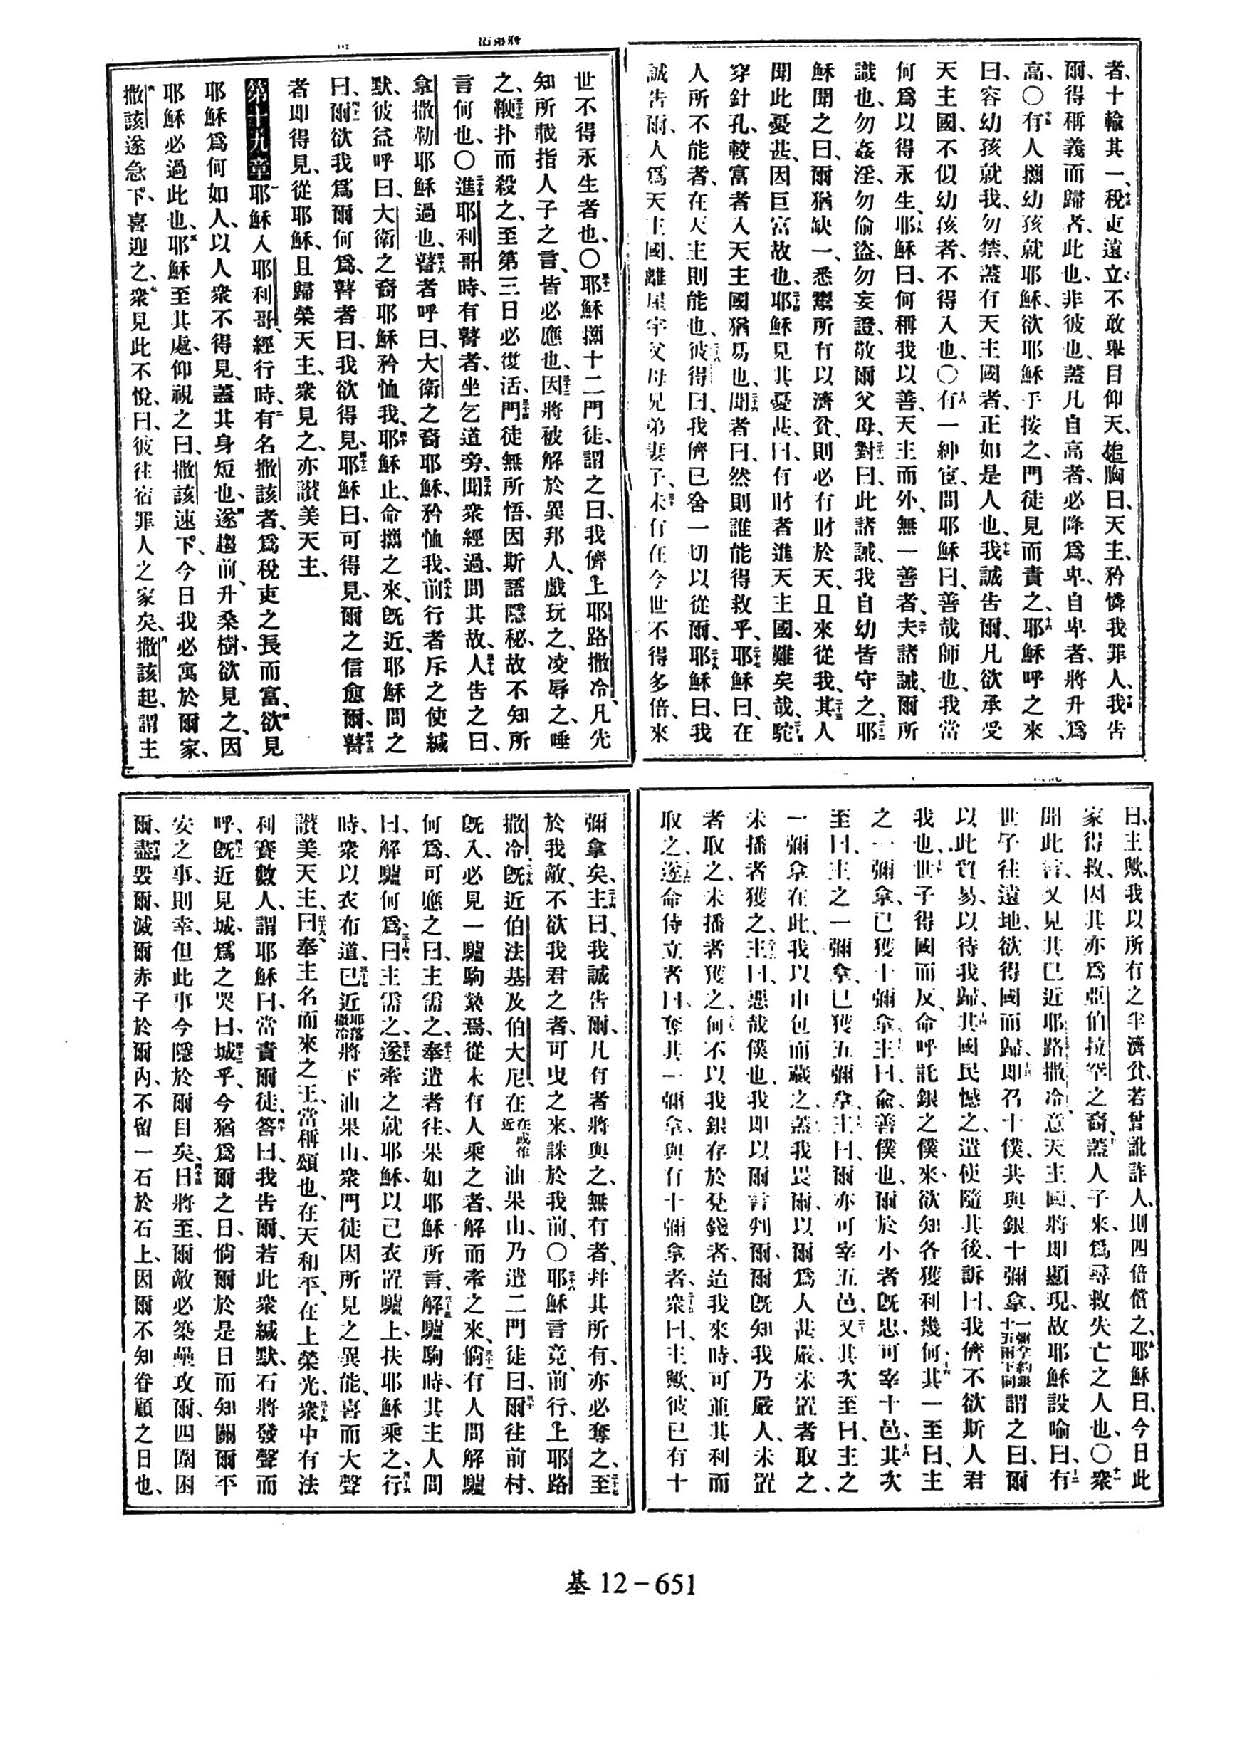 者、十輸其一、稅吏遠立不敢舉目仰天、搥胸曰、天主、矜憐我罪人、我告
爾、得稱義而歸者、此也、非彼也、蓋凡自高者、必降爲卑、自卑者、將升爲
高、〇有人攜幼孩就耶穌、欲耶穌手按之、門徒見而責之、耶穌呼之來
曰、容幼孩就我、勿禁、蓋有天主國者、正如是人也、我誠告爾、凡欲承受
天主國、不似幼孩者、不得入也、〇有一紳宦、問耶穌曰、善哉師也、我當
何爲以得永生、耶穌曰、何稱我以善、天主而外、無一善者、夫諸誡、爾所
識也、勿姦淫、勿偷盜、勿妄證、敬爾父母、對曰、此諸誡、我自幼皆守之、耶
穌聞之曰、爾猶缺一、悉鬻所有以濟貧、則必有財於天、且來從我、其人
聞此憂甚、因巨富故也、耶穌見其憂甚、曰、有財者進天主國、難矣哉、駝
穿針孔、較富者入天主國猶易也、聞者曰、然則誰能得救乎、耶穌曰、在
人所不能者、在天主則能也、彼得曰、我儕已舍一切以從爾、耶穌曰、我
誠告爾、人爲天主國、離屋宇父母兄弟妻子、未有在今世不得多倍、來
世不得永生者也、〇耶穌攜十二門徒、謂之曰、我儕上耶路撒冷、凡先
知所載指人子之言、皆必應也、因將被解於異邦人、戲玩之、凌辱之、唾
之、鞭扑而殺之、至第三日必復活、門徒無所悟、因斯語隱秘、故不知所
言何也、〇進耶利哥時、有瞽者、坐乞道旁、聞衆經過、問其故、人告之曰、
拿撒勒耶穌過也、瞽者呼曰、大衛之裔耶穌、矜恤我、前行者斥之使緘
默、彼益呼曰、大衛之裔耶穌矜恤我、耶穌止、命攜之來、旣近、耶穌問之
曰、爾欲我爲爾何爲、瞽者曰、我欲得見、耶穌曰、可得見、爾之信愈爾、瞽
者即得見、從耶穌、且歸榮天主、衆見之、亦讚美天主、
第十九章 耶穌入耶利哥、經行時、有名撒該者、爲稅吏之長而富、欲見
耶穌爲何如人、以人衆不得見、蓋其身短也、遂趨前、升桑樹、欲見之、因
耶穌必過此也、耶穌至其處、仰視之曰、撒該速下、今日我必寓於爾家、
撒該遂急下、喜迎之、衆見此不悅曰、彼往宿罪人之家矣、撒該起、謂主
曰、主歟、我以所有之半濟貧、若曾訛詐人、則四倍償之、耶穌曰、今日此
家得救、因其亦爲亞伯拉罕之裔、蓋人子來、爲尋救失亡之人也、〇衆
聞此言、又見其已近耶路撒冷、意天主國、將即顯現、故耶穌設喻曰、有
世子往遠地、欲得國而歸、即召十僕、共與銀十彌拿、一彌拿約銀十五兩下同 謂之曰、爾
以此貿易、以待我歸、其國民憾之、遣使隨其後、訴曰、我儕不欲斯人君
我也、世子得國而反、命呼託銀之僕來、欲知各獲利幾何、其一至曰、主
之一彌拿、已獲十彌拿、主曰、兪、善僕也、爾於小者旣忠、可宰十邑、其次
至曰、主之一彌拿、已獲五彌拿、主曰、爾亦可宰五邑、又其次至曰、主之
一彌拿在此、我以巾包而藏之、蓋我畏爾、以爾爲人甚嚴、未置者取之、
未播者獲之、主曰、惡哉僕也、我即以爾言判爾、爾旣知我乃嚴人、未置
者取之、未播者獲之、何不以我銀存於兌錢者、迨我來時、可並其利而
取之、遂命侍立者曰、奪其一彌拿、與有十彌拿者、衆曰、主歟、彼已有十
彌拿矣、主曰、我誠告爾、凡有者將與之、無有者、幷其所有、亦必奪之、至
於我敵、不欲我君之者、可曳之來、誅於我前、〇耶穌言竟、前行、上耶路
撒冷、旣近伯法基及伯大尼、在在或作近油果山、乃遣二門徒曰、爾往前村、
旣入、必見一驢駒縶焉、從未有人乘之者、解而牽之來、倘有人問解驢
何爲、可應之曰、主需之、奉遣者往、果如耶穌所言、解驢駒時、其主人問
曰、解驢何爲、曰、主需之、遂牽之就耶穌、以己衣置驢上、扶耶穌乘之、行
時、衆以衣布道、已近耶路撒冷、將下油果山、衆門徒因所見之異能、喜而大聲
讚美天主、曰、奉主名而來之王、當稱頌也、在天和平、在上榮光、衆中有法
利賽數人、謂耶穌曰、當責爾徒、答曰、我告爾、若此衆緘默、石將發聲而
呼、旣近見城、爲之哭曰、城乎、今猶爲爾之日、倘爾於是日而知關爾平
安之事、則幸、但此事今隱於爾目矣、日將至、爾敵必築壘攻爾、四圍困
爾、盡毀爾、滅爾赤子於爾內、不留一石於石上、因爾不知眷顧之日也、
基 12－651